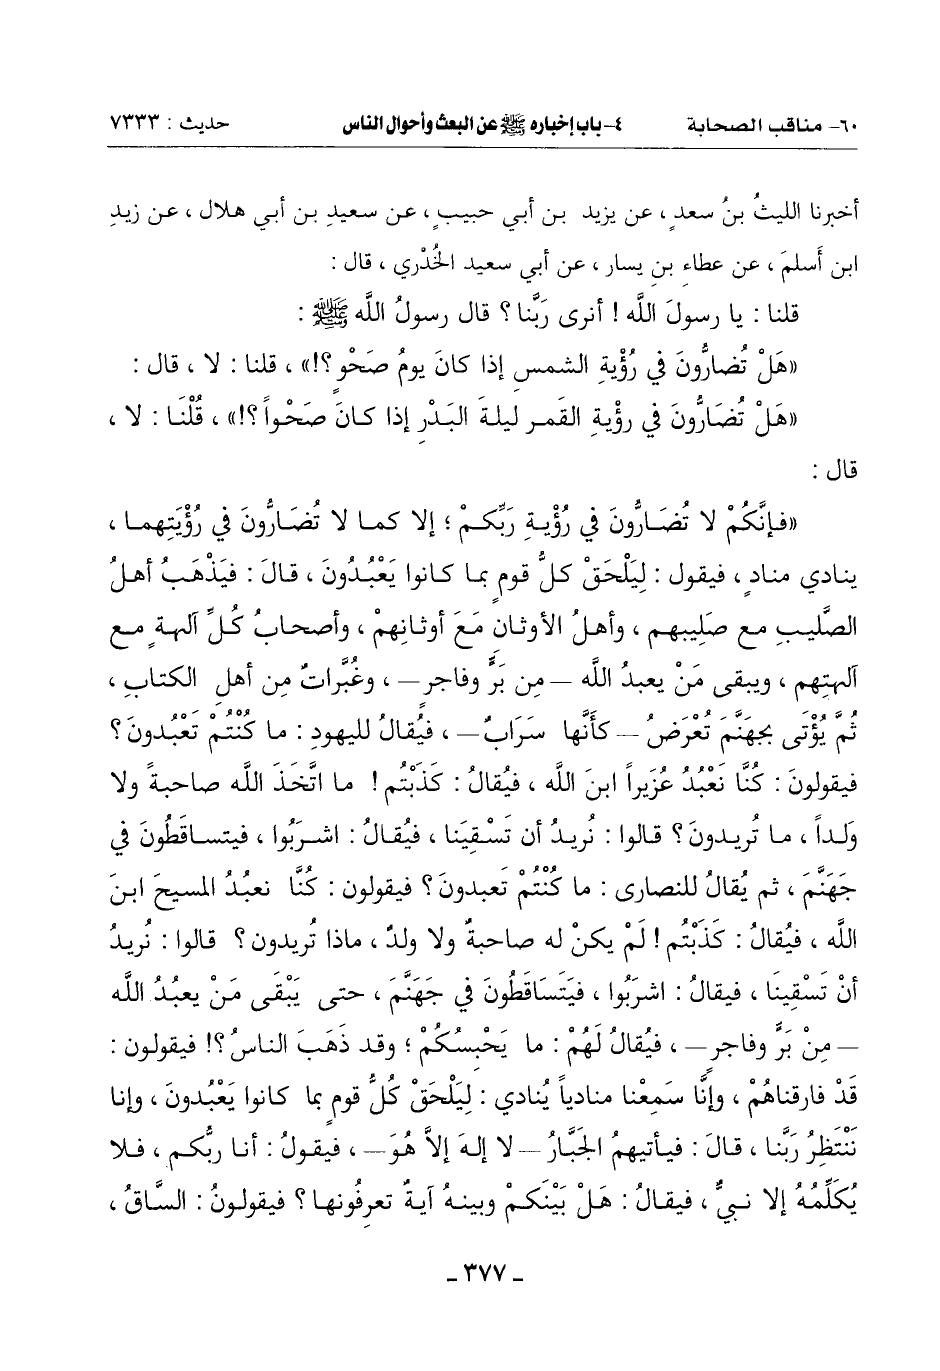 ٦٠- مناقب الصحابة ٤- باب إخباره ﷺ عن البعث وأحوال الناس حديث : ٧٣٣٣
أخبرنا الليثُ بنُ سعدٍ ، عن يزيد بن أبي حبيبٍ ، عن سعيدِ بن أبي هلال ، عن زيدِ
ابن أَسلمَ ، عن عطاءِ بن يسار ، عن أبي سعيد الخُدْري ، قال :
قلنا : يا رسولَ اللَّه ! أنرى رَبَّنا ؟ قال رسولُ اللَّه ﷺ :
«هَلْ تُضارُّونَ في رُؤْيةِ الشمسِ إذا كانَ يومُ صَحْوٍ ؟!» ، قلنا : لا ، قال :
«هَلْ تُضَارُّونَ في رؤْيةِ القَمر ليلةَ البَدْرِ إذا كانَ صَحْواً ؟!» ، قُلْنَا : لا ،
قال :
«فإنَّكُمْ لا تُضَارُّونَ في رُؤْيةِ رَبِّكمْ ؛ إلا كما لا تُضَارُّونَ في رُؤْيَتِهما ،
ينادي منادٍ ، فيقول : لِيَلْحَقْ كلُّ قومٍ بما كانوا يَعْبُدُونَ ، قالَ : فيَذْهَبُ أهلُ
الصَّليبِ مع صليبهم ، وأهلُ الأوثانِ مَعَ أوثانِهمْ ، وأصحابُ كُلِّ آلهةٍ مع
آلهتِهم ، ويبقى مَنْ يعبدُ اللَّه –مِن بَرٍّ وفاجرٍ– ، وغُبَّراتٌ مِن أهلِ الكتابِ ،
ثُمَّ يُؤْتَى بجهَنَّمَ تُعْرَضُ –كأنَّها سَرَابٌ– ، فيُقالُ لليهودِ : ما كُنْتُمْ تَعْبُدونَ ؟
فيقولونَ : كُنَّا نَعْبُدُ عُزَيراً ابنَ اللَّه ، فيُقالُ : كَذَبْتُم ! ما اتَّخَذَ اللَّه صاحبةً ولا
وَلداً ، ما تُريدونَ ؟ قالوا : نُريدُ أن تَسْقِيَنَا ، فيُقالُ : اشرَبُوا ، فيتساقَطُونَ في
جَهَنَّمَ ، ثم يُقالُ للنصارى : ما كُنْتُمْ تَعبدونَ ؟ فيقولون : كُنَّا نعبُدُ المسيحَ ابنَ
اللَّه ، فيُقالُ : كَذَبْتُم ! لَمْ يكنْ له صاحبةٌ ولا ولدٌ ، ماذا تُريدون ؟ قالوا : نُريدُ
أنْ تَسْقِينَا ، فيقالُ : اشرَبُوا ، فيَتَسَاقَطُونَ في جَهَنَّمَ ، حتى يَبْقَى مَنْ يعبُدُ اللَّه
–مِنْ بَرٍّ وفاجرٍ– ، فيُقالُ لَهُمْ : ما يَحْبِسُكُمْ ؛ وقد ذَهَبَ الناسُ ؟! فيقولون :
قَدْ فارقناهُمْ ، وإنَّا سَمِعْنا منادياً يُنادي : لِيَلْحَقْ كُلُّ قومٍ بما كانوا يَعْبُدونَ ، وإنا
نَنْتَظِرُ رَبَّنا ، قالَ : فيأتيهمُ الجَبَّارُ –لا إلهَ إلاَّ هُوَ– ، فيقولُ : أنا ربُّكم ، فلا
يُكَلِّمُهُ إلا نبيٌّ ، فيقالُ : هَلْ بَيْنَكمْ وبينهُ آيةٌ تعرِفُونها ؟ فيقولونُ : السَّاقُ ،
- ٣٧٧ -